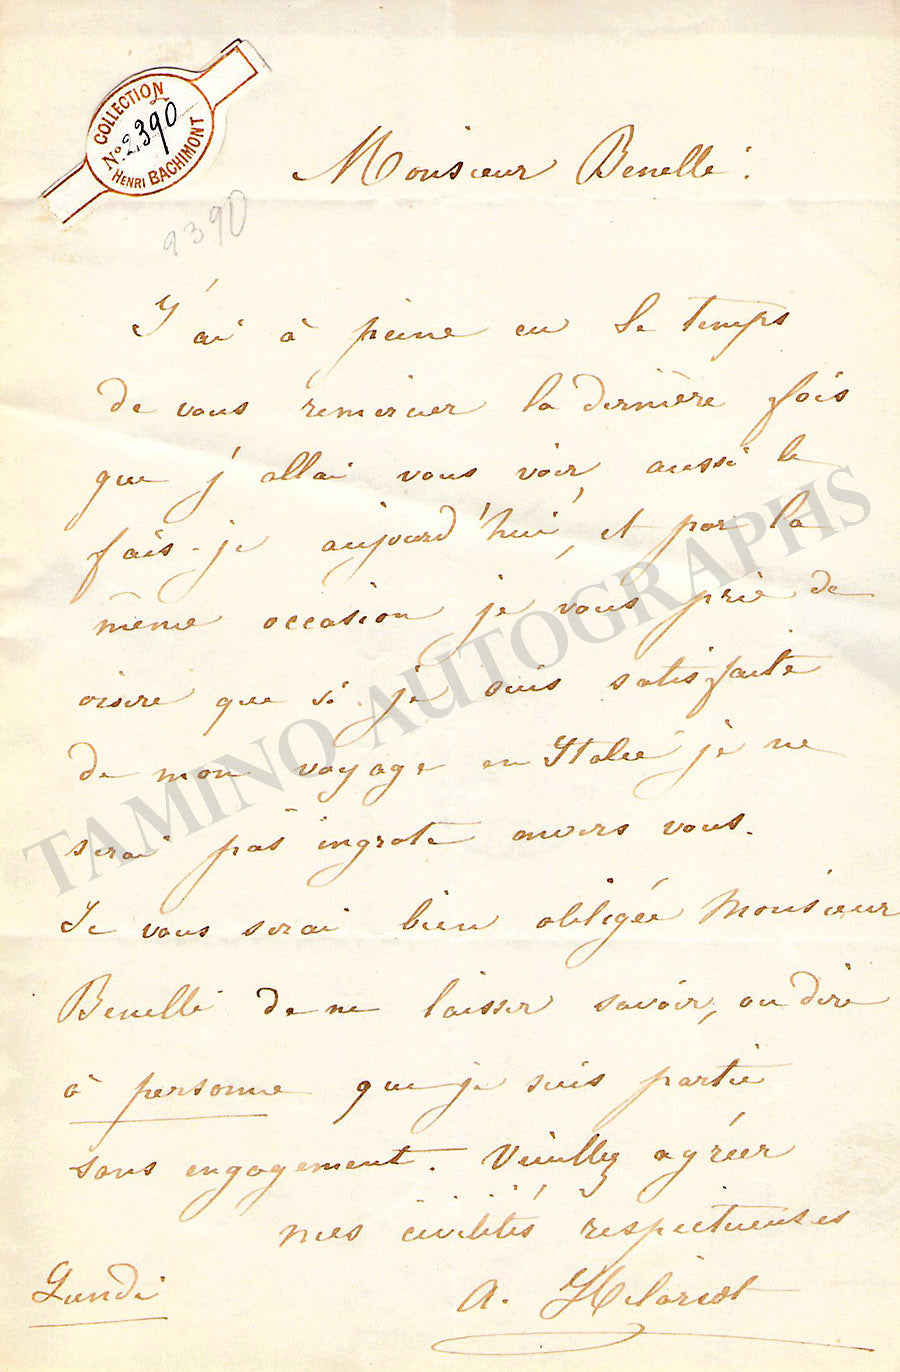 COLLECTION
No. 2,390
HENRI BACHIMONT
2390
Monsieur Benelli:
J'ai à peine eu le temps
de vous remercier la dernière fois
que j'allai vous voir, aussi le
fais-je aujourd'hui, et par la
même occasion je vous prie de
croire que si je suis satisfaite
de mon voyage en Italie je ne
serai pas ingrate envers vous.
Je vous serai bien obligée Monsieur
Benelli de ne laisser savoir, ou dire
à personne que je suis partie
sans engagement. Veuillez agréer
mes civilités respectueuses
Lundi
A.
TAMINO AUTOGRAPHS